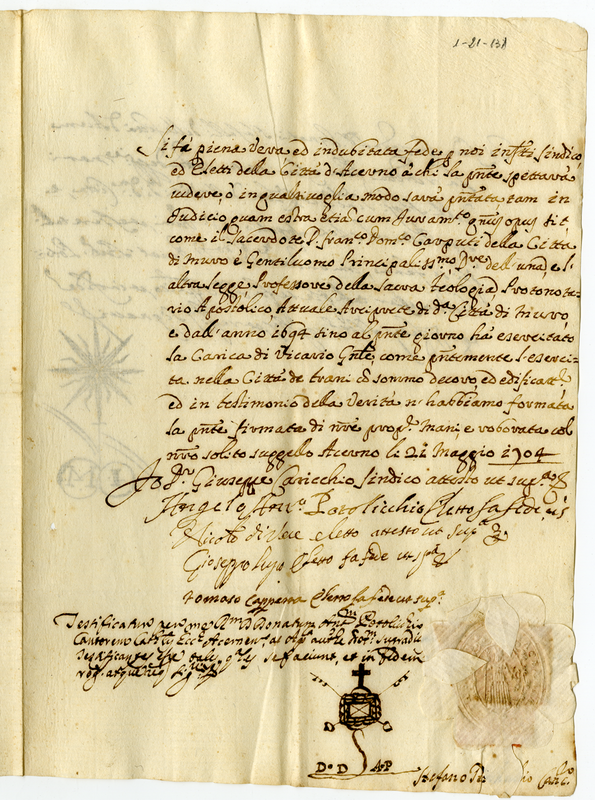 1-21-138
Si fà piena vera ed indubitata fede p noi infti Sindico
ed Eletti della Città d'Acerno à chi la pnte spettarà
videre, ò in qualsivoglia modo sarà pntata tam in
Judicio quam extra etia cum Juramto qnus opus sit
come il Sacerdote D. Franco Domco Carputi della Città
di Muro è Gentiluomo Principalissmo Dre dell'una e l'
altra legge, Professore della Sacra Teologia, Protonota
rio Apostolico, Attuale Arciprete di da Città di Muro,
e dall'anno 1694 sino al pnte giorno hà esercitato
la Carica di Vicario Gnle, come pntemente l'eserci-
ta nella Città de Trani con sommo decoro, ed edificatne
ed in testimonio della Verità n'habbiamo formata
la pnte firmata di nre prop.e mani, e roborata col
nro solito suggello Acerno li 21 Maggio 1704
Io Dr Giuseppe Caricchio Sindico attesto ut supa
Angelo Anto Potolicchio Eletto fa fede, ut s
Nicolò di Vece eletto attesto ut supa
Gioseppo Eletto fa fede ut spa
Tomaso Cappetta Eletto fa fede ut supa
Testificatur per me D. Donatum Antm Potolichio
Cantorem Cathlis Ecce Acernen, ac Aplca authe Notm supradictos
testificantes esse tales, qles se faciunt, et in fidem
rog. atque req. signavi
D. D A. P
Stefano